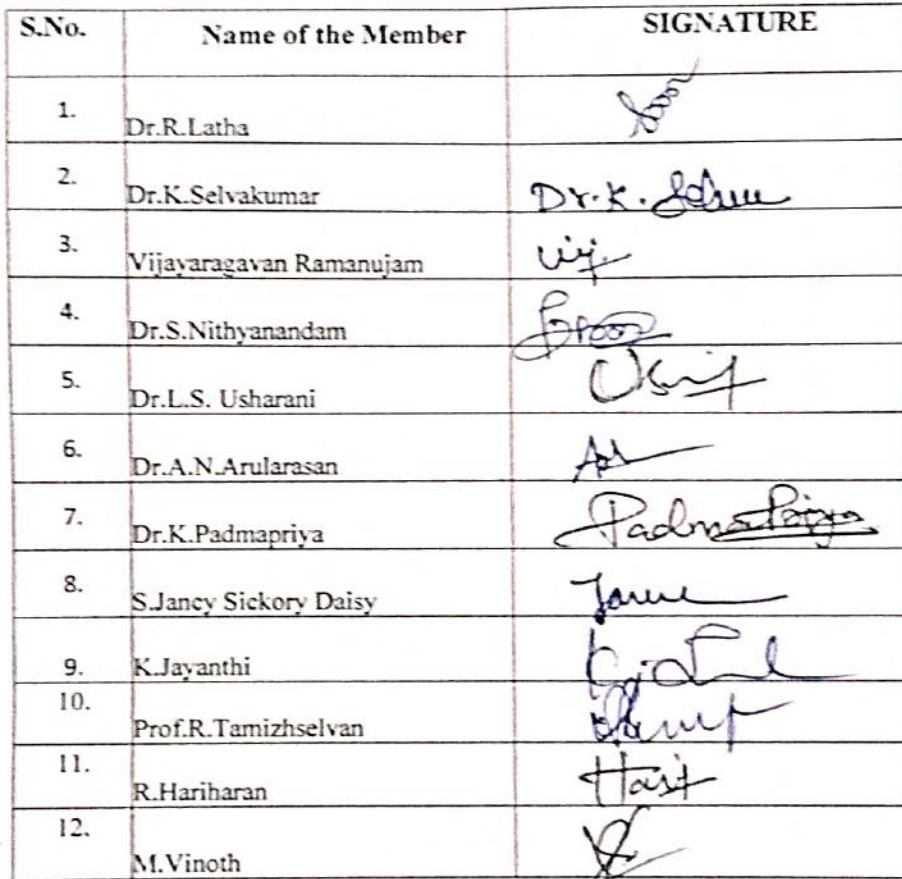 S.No. Name of the Member SIGNATURE
1. Dr.R.Latha
2. Dr.K.Selvakumar Dr.K.
3. Vijayaragavan Ramanujam
4. Dr.S.Nithyanandam
5. Dr.L.S. Usharani
6. Dr.A.N.Arularasan
7. Dr.K.Padmapriya PadmaPriya
8. S.Jancy Sickory Daisy
9. K.Jayanthi
10. Prof.R.Tamizhselvan
11. R.Hariharan
12. M.Vinoth